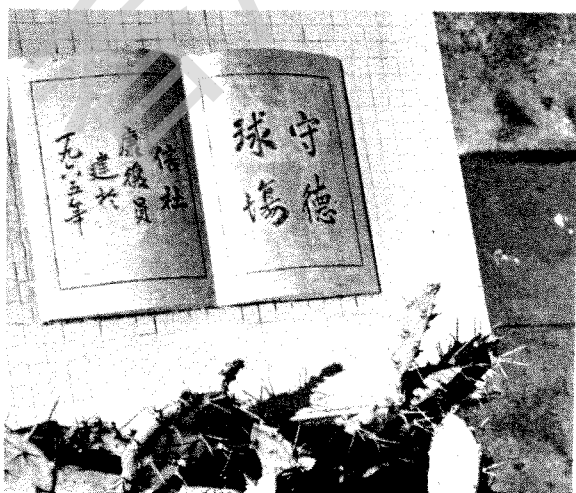 守德
球塲
信社
康復員
建於
一九六五年